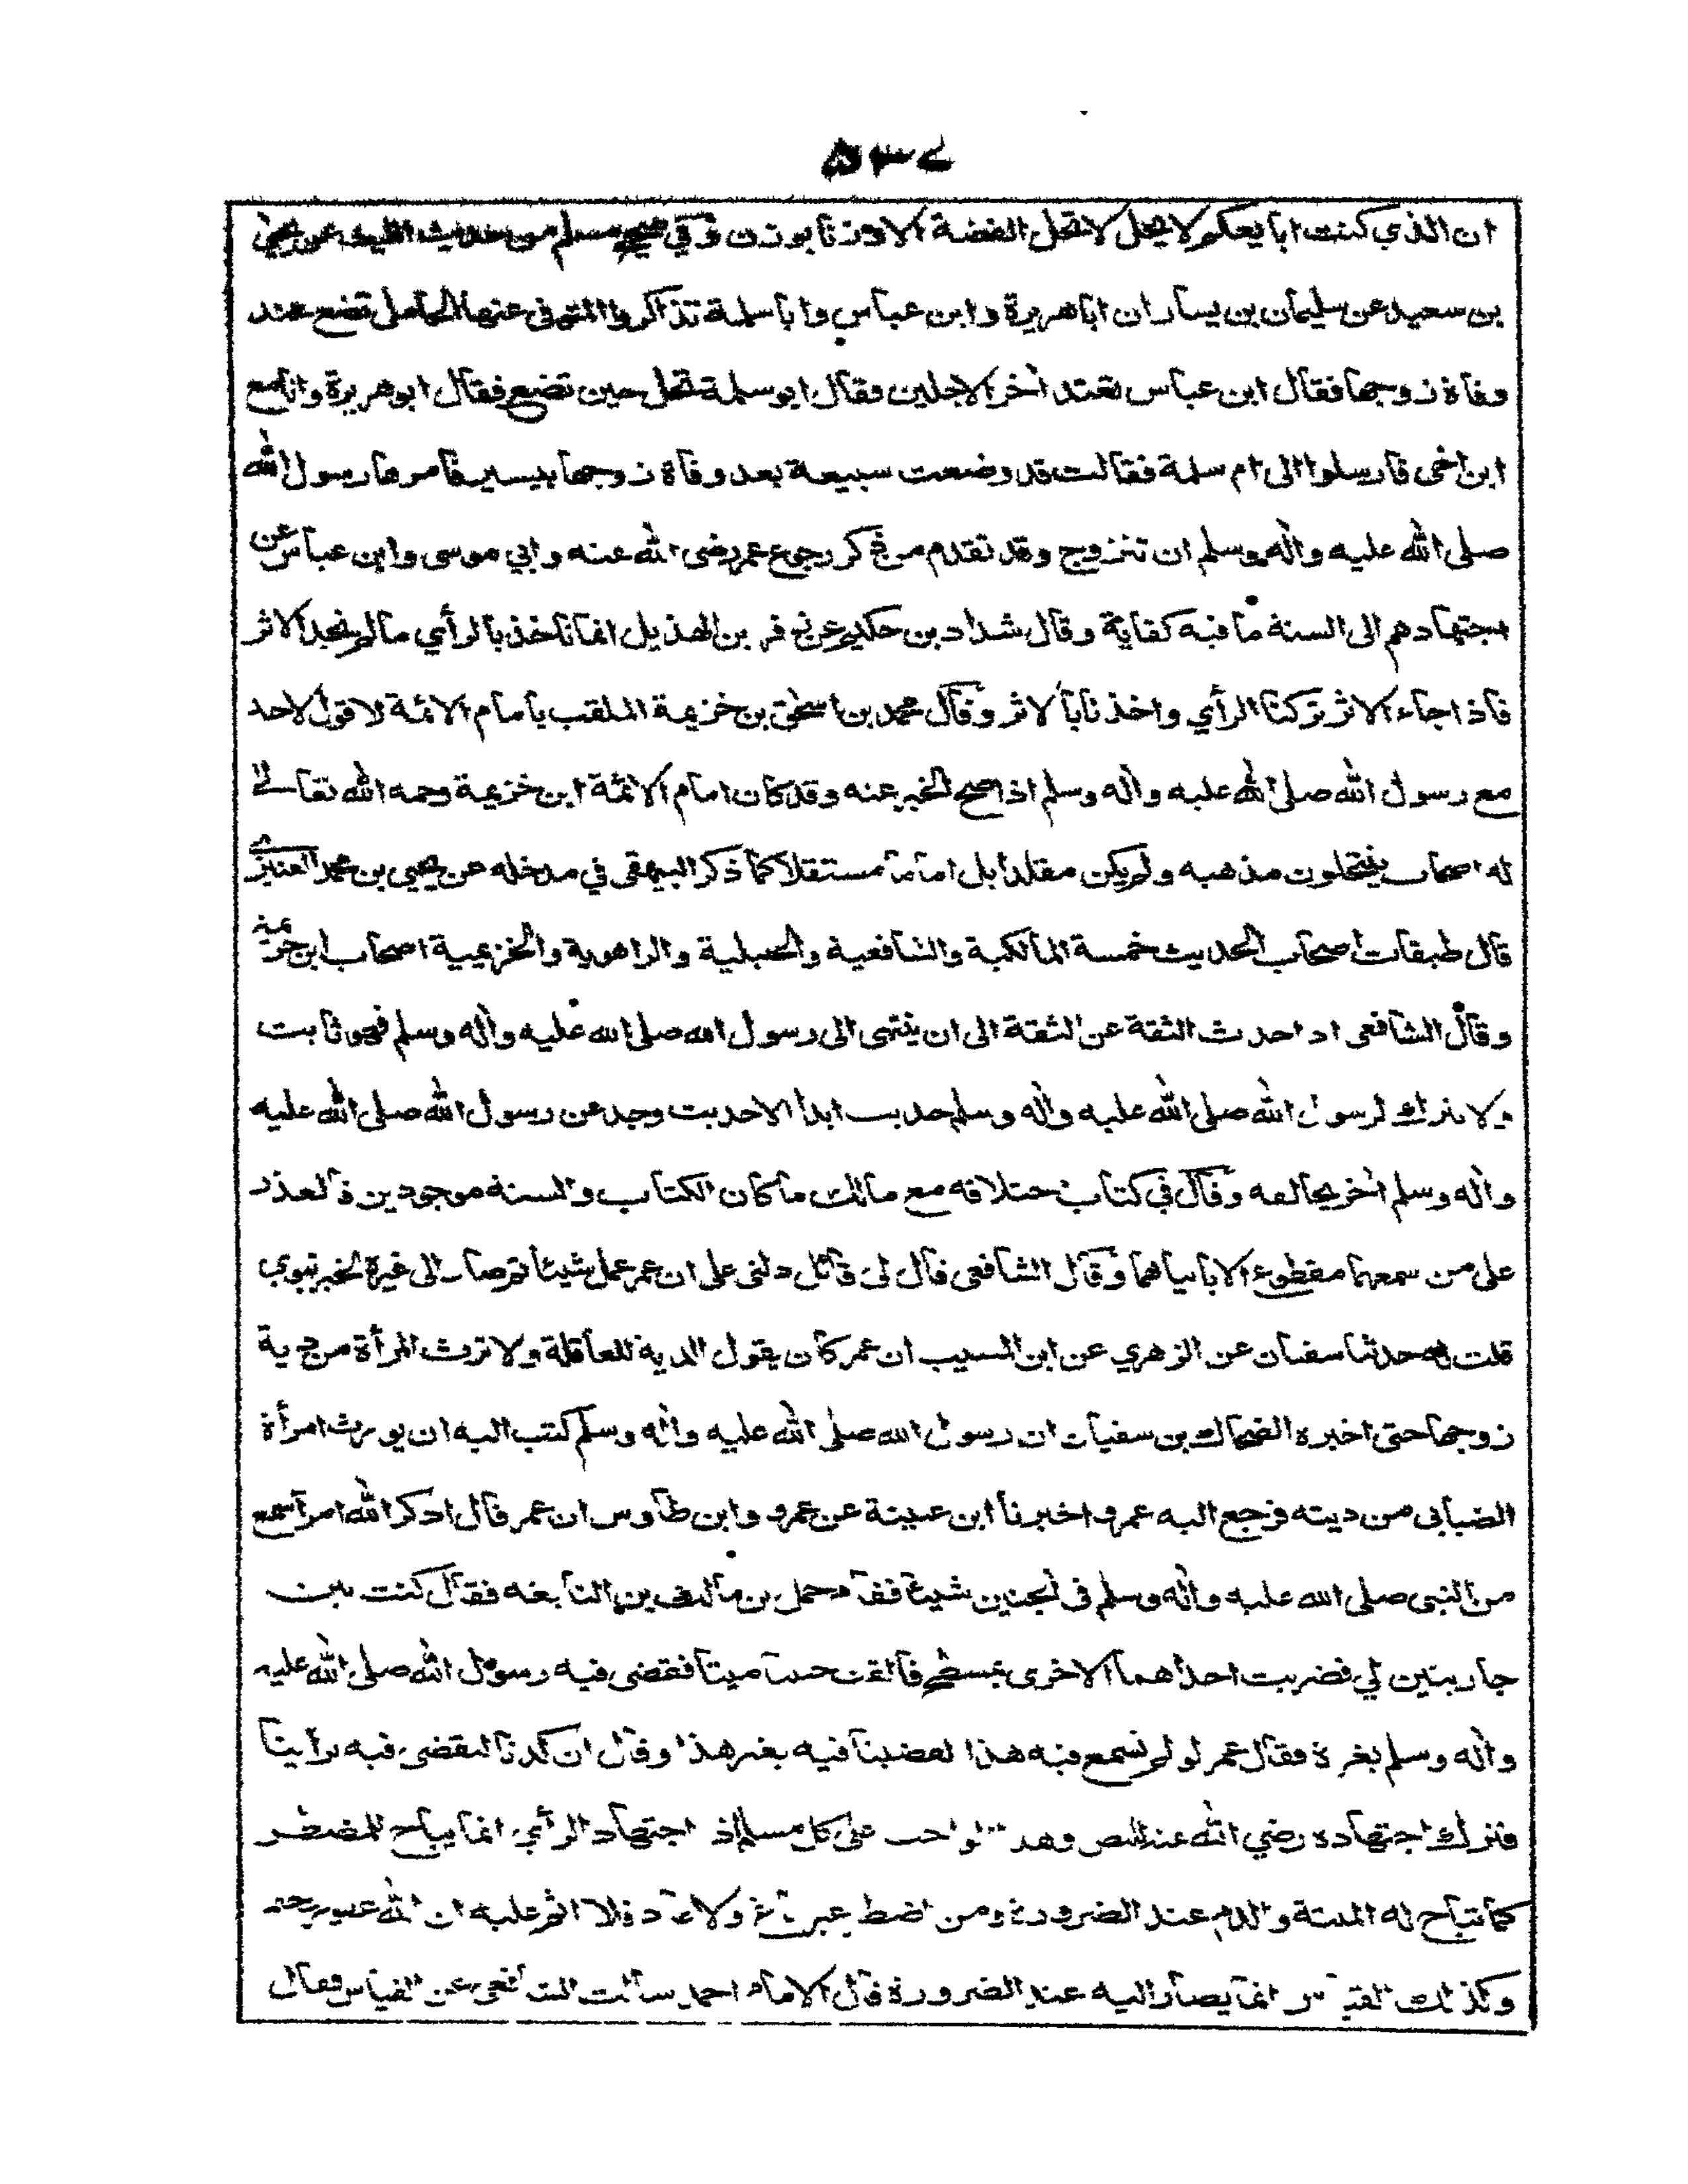 ٥٣٧
ان الذي كنت ابايعكم لا يحل لا تحل الفضة الا وزنا بوزن وفي صحيح مسلم من حديث الليث عن يحيى
بن سعيد عن سليمان بن يسار ان اباهريرة وابن عباس وابا سلمة تذاكروا المتوفى عنها الحامل تضع عند
وفاة زوجها فقال ابن عباس تعتد اخر الاجلين فقال ابوسلمة تحل حين تضع فقال ابوهريرة وانا مع
ابن اخي فارسلوا الى ام سلمة فقالت قد وضعت سبيعة بعد وفاة زوجها بيسير فامرها رسول الله
صلى الله عليه واله وسلم ان تتزوج وقد تقدم من ذكر رجوع عمر رضى الله عنه وابي موسى وابن عباس عن
اجتهادهم الى السنة ما فيه كفاية وقال شداد بن حكيم عن زفر بن الهذيل انما ناخذ بالرأي مالم نجد الاثر
فاذا جاء الاثر تركنا الرأي واخذنا بالاثر وقال محمد بن اسحق بن خزيمة الملقب بامام الائمة لا قول لاحد
مع رسول الله صلى الله عليه واله وسلم اذا صح الخبر عنه وقد كان امام الائمة ابن خزيمة رحمه الله تعالى
له اصحاب ينتحلون مذهبه ولم يكن مقلدا بل اماما مستقلا كما ذكر البيهقي في مدخله عن يحيى بن محمد العنبري
قال طبقات اصحاب الحديث خمسة المالكية والشافعية والحنبلية والراهوية والخزيمية اصحاب ابن خزيمة
وقال الشافعى اذا حدث الثقة عن الثقة الى ان ينتهى الى رسول الله صلى الله عليه واله وسلم فهو ثابت
ولا يترك لرسول الله صلى الله عليه واله وسلم حديث ابدا الا حديث وجد عن رسول الله صلى الله عليه
واله وسلم اخر يخالفه وقال في كتاب اختلافه مع مالك ما كان الكتاب والسنة موجودين فالعذر
على من سمعهما مقطوع الا باتيانهما وقال الشافعى قال لى قائل دلنى على ان عمر عمل شيئا ثم صار الى غيره لخبر نبوي
قلت له حدثنا سفيان عن الزهري عن ابن المسيب ان عمر كان يقول الدية للعاقلة ولا ترث المرأة من دية
زوجها حتى اخبره الضحاك بن سفيان ان رسول الله صلى الله عليه واله وسلم كتب اليه ان يورث امرأة
الضبابى من ديته فرجع اليه عمر واخبرنا ابن عيينة عن عمرو وابن طاوس ان عمر قال اذكر الله امرأ سمع
من النبى صلى الله عليه واله وسلم فى الجنين شيئا فقام حمل بن مالك بن النابغه فقال كنت بين
جاريتين لي فضربت احداهما الاخرى بمسطح فالقت جنينا ميتا فقضى فيه رسول الله صلى الله عليه
واله وسلم بغرة فقال عمر لو لم نسمع فيه هذا لقضينا فيه بغير هذا وقال ان كدنا لنقضى فيه براينا
فترك اجتهاده رضي الله عنه للنص وهذا هو الواجب على كل مسلم اذ اجتهاد الرأي انما يباح للمضطر
كما تباح له الميتة والدم عند الضرورة ومن اضطر غير باغ ولا عاد فلا اثم عليه ان الله غفور رحيم
وكذلك القياس انما يصار اليه عند الضرورة قال الامام احمد سألت الشافعى عن القياس فقال